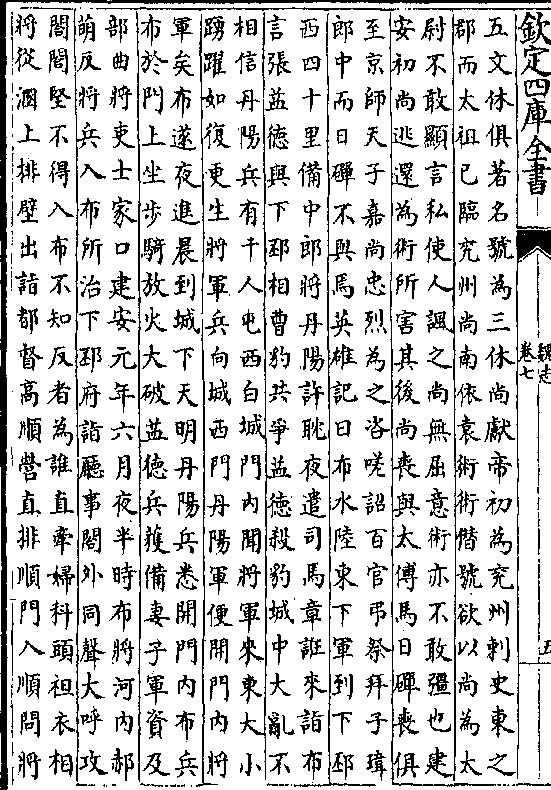 欽定四庫全書
魏志
卷七
五
五文休俱著名號為三休尚獻帝初為兖州刺史東之
郡而太祖已臨兖州尚南依袁術術僭號欲以尚為太
尉不敢顯言私使人諷之尚無屈意術亦不敢彊也建
安初尚逃還為術所害其後尚喪與太傅馬日磾喪俱
至京師天子嘉尚忠烈為之咨嗟詔百官弔祭拜子瑋
郎中而日磾不與焉英雄記曰布水陸東下軍到下邳
西四十里備中郎將丹陽許耽夜遣司馬章誑來詣布
言張益德與下邳相曹豹共爭益德殺豹城中大亂不
相信丹陽兵有千人屯西白城門内聞將軍來東大小
踴躍如復更生將軍兵向城西門丹陽軍便開門内將
軍矣布遂夜進晨到城下天明丹陽兵悉開門内布兵
布於門上坐步騎放火大破益德兵獲備妻子軍資及
部曲將吏士家口建安元年六月夜半時布將河内郝
萌反將兵入布所治下邳府詣廳事閤外同聲大呼攻
閤閤堅不得入布不知反者為誰直牽婦科頭袒衣相
將從溷上排壁出詣都督高順營直排順門入順問將